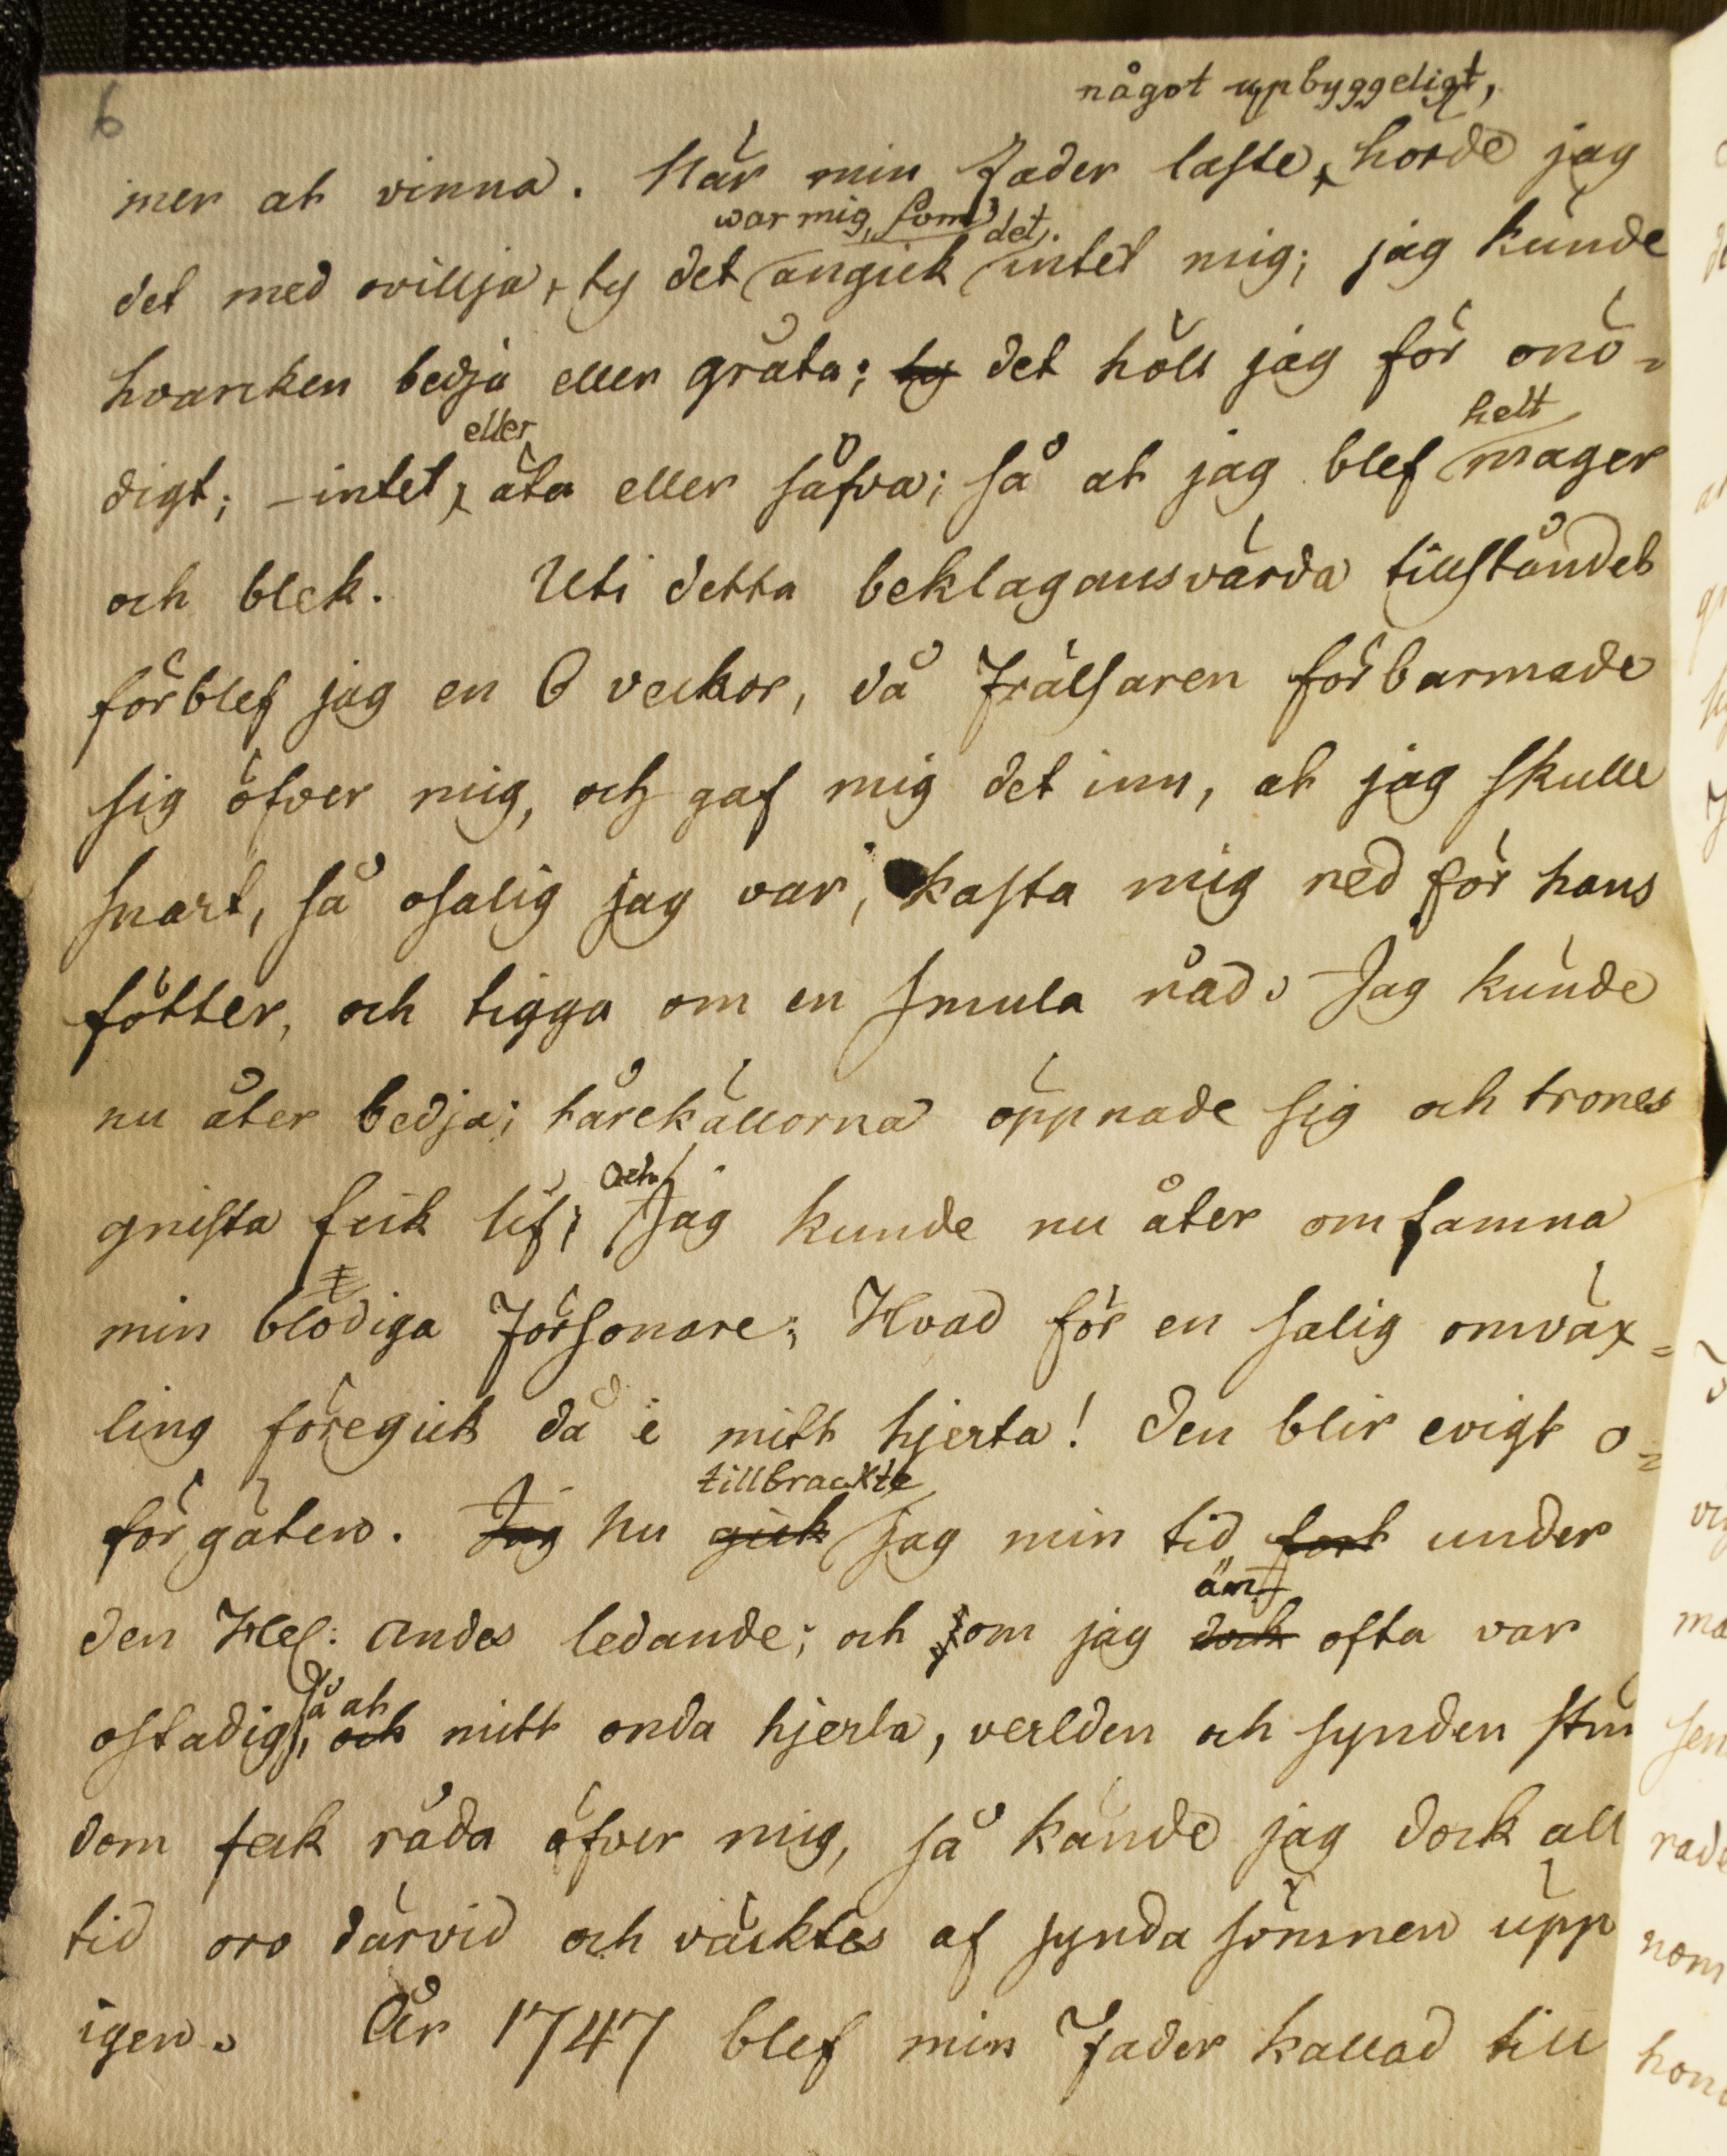 6
något upbyggeligt,
mer at vinna. När min Fader läste, hörde jag
war mig, som det.
det med ovillja, ty det angick intet mig; jag kunde
hvarcken bedja eller gråta; ty det höll jag för onö-
eller helt
digt; - intet, äta eller såfva; så at jag blef mager
och blek. Uti detta beklagansvärda tillståndet
förblef jag en 6 veckor, då Frälsaren förbarmade
sig öfver mig, och gaf mig det inn, at jag skulle
snart, så osalig jag var, kasta mig ned för hans
fötter, och tigga om en smula nåd. Jag kunde
nu åter bedja; tårekällorna öppnade sig och trones
Och
gnista feck lif; Jag kunde nu åter omfamna
min blodiga Försonare; Hvad för en salig omväx=
ling föregick då i mitt hjerta! Den blir evigt o=
tillbrackte
förgäten. Jag nu gick jag min tid fort under
än
den Hel: Andes ledande; och som jag dock ofta var
så at
ostadig, och mitt onda hjerta, verlden och synden stun
dom feck råda öfver mig, så kände jag dock all
tid oro därvid och väcktes af synda sömnen upp
igen. År 1747 blef min Fader kallad till